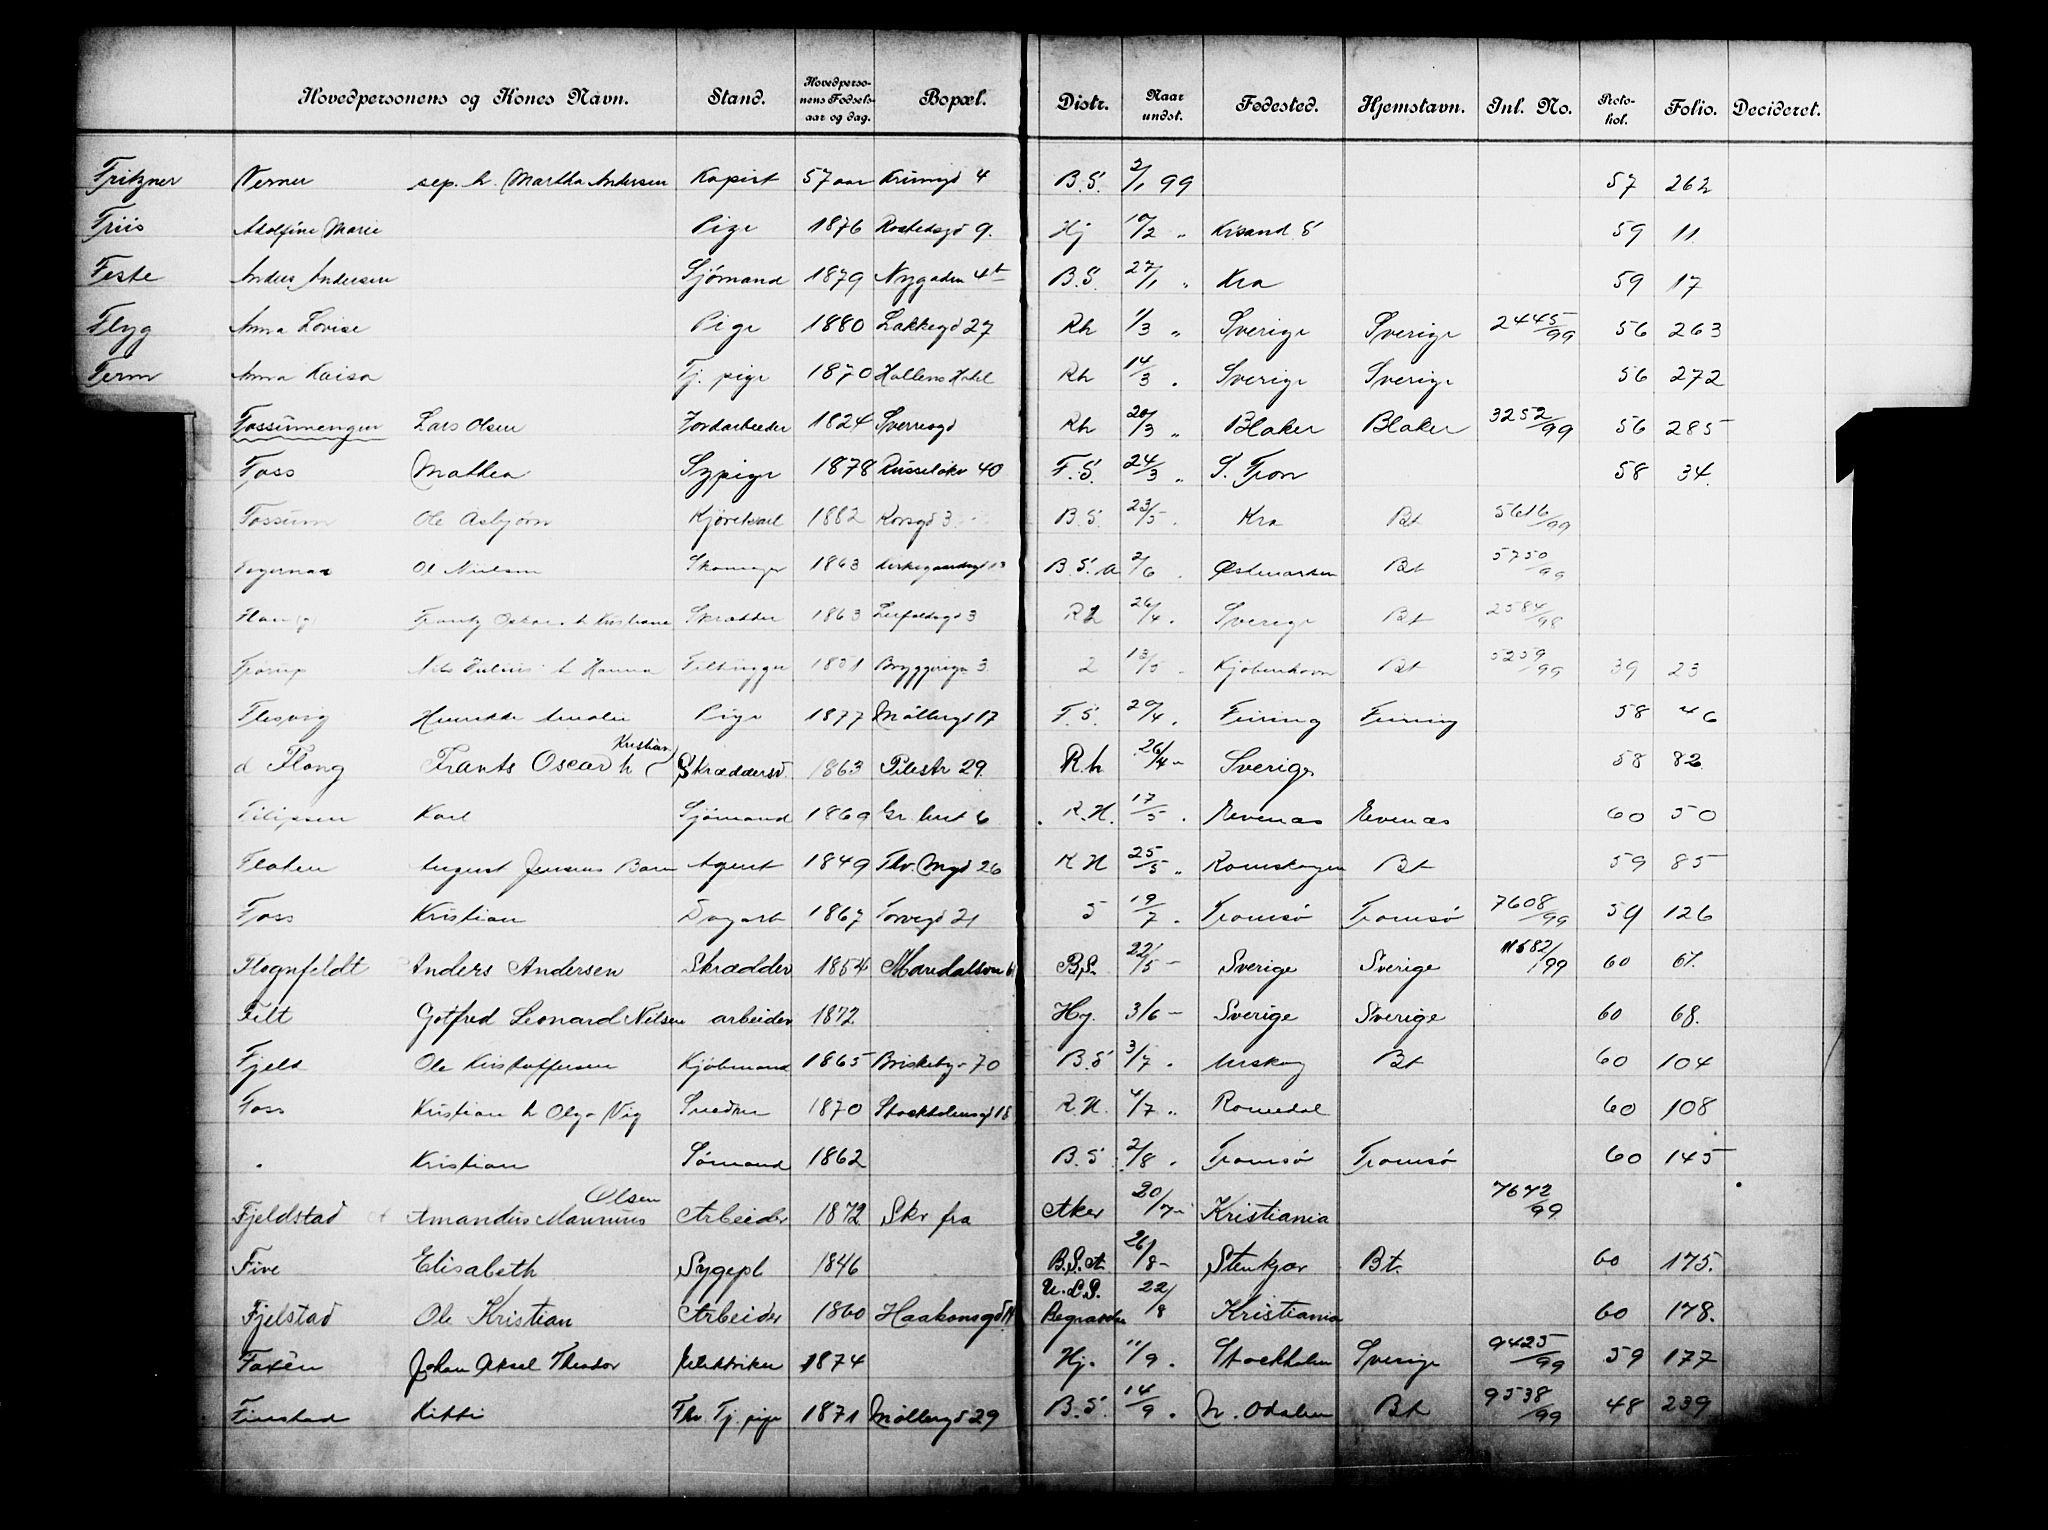 Hovedpersonens og Kones Navn. Stand. Hovedpersonens Fødselsaar og dag. Bopæl. Distr. Naar undst. Fødested. Hjemstavn. Inl. No. Protokol. Folio. Decideret.
Fritzner Verner sep. h. Martha Andersen Kopist 57 aar 4 B.S. 2/1 99 57 262
Friis Adolfine Marie Pige 1876 Rostedsgd 9. Hj 10/2 " Krsand S 59 11
Feste Anders Andersen Sjømand 1879 Nygaden B.S. 27/1 " Kra 59 17
Flyg Anna Lovise Pige 1880 Lakkegd 27 Rh 1/3 " Sverige Sverige 2445/99 56 263
Ferm Anna Kaisa Tj. pige 1870 Hallens Hotel Rh 14/3 . Sverige Sverige 56 272
Fossumengen Lars Olsen Jordarbeider 1824 Sverresgd Rh 20/3 " Blaker Blaker 3252/99 56 285
Foss Mathea Sypige 1878 Russeløkv 40 F.S. 24/3 " S. Fron 58 34.
Fossum Ole Asbjørn 1882 Korsgd 3 B.S. 23/5 . Kra Bt 5616/99
Ol Nielsen Skomager 1863 B.S.A 2/6 . Østmarken Bt 5750/99
Frantz Oskar h Kristiane Skrædder 1863 3 Rh 26/4 . Sverige Bt 2584/98
Nils Julius h Hanna 3 2 13/5 . Kjøbenhavn Bt 5259/99 39 23
Flesvig Henrikke Amalie Pige 1877 Møllergd 17 F.S. 20/4 . Feiring Feiring 58 46
d Flong Frants Oscar h Kristian Skræddersv. 1863 Pilestr 29. R.h 26/4 - Sverige 58 82
Filipsen Karl Sjømand 1869 6 R.H. 17/5 . Evenæs Evenæs 60 50
Floten August Jensenius Agent 1849 Thv. Mgd 26 R H 25/5 " Romskogen Bt 59 85
Foss Kristian Dagarb 1867 Torvegd 21 5 19/7 . Tromsø Tromsø 7608/99 59 126
Flognfeldt Anders Andersen Skrædder 1854 Maridalsvn B.S. 22/5 - Sverige Sverige 11682/99 60 67.
Felt Gotfred Leonard Nilsen arbeider 1872 Hj. 3/6 - Sverige Sverige 60 68.
Fjeld Ole Kristoffersen Kjøbmand 1865 Briskeby 70 B.S 3/7 . Urskog Bt 60 104
Foss Kristian h Olga Vig Snedker 1870 Stockholmsgd 18 R.H. 4/7 " Romedal 60 108
" Kristian Sømand 1862 B.S 2/8 . Tromsø Tromsø 60 145
Fjeldstad Amandus Olsen Arbeider 1872 Skr fra Aker 20/7 - Kristiania 7672/99
Five Elisabeth Sygepl 1846 B.S.A 26/8 - Stenkjær Bt. 60 175.
Fjelstad Ole Kristian Arbeider 1860 Haakonsgd U.L.S. 22/8 Kristiania 60 178.
Faxén Johan Aksel Theodor Elektriker 1874 Hj. 11/9 . Stockholm Sverige 9425/99 59 177
Finstad Kitti Fhv. Tj. pige 1871 Møllergd 29 B.S. 14/9 . N. Odalen Bt 9538/99 48 239